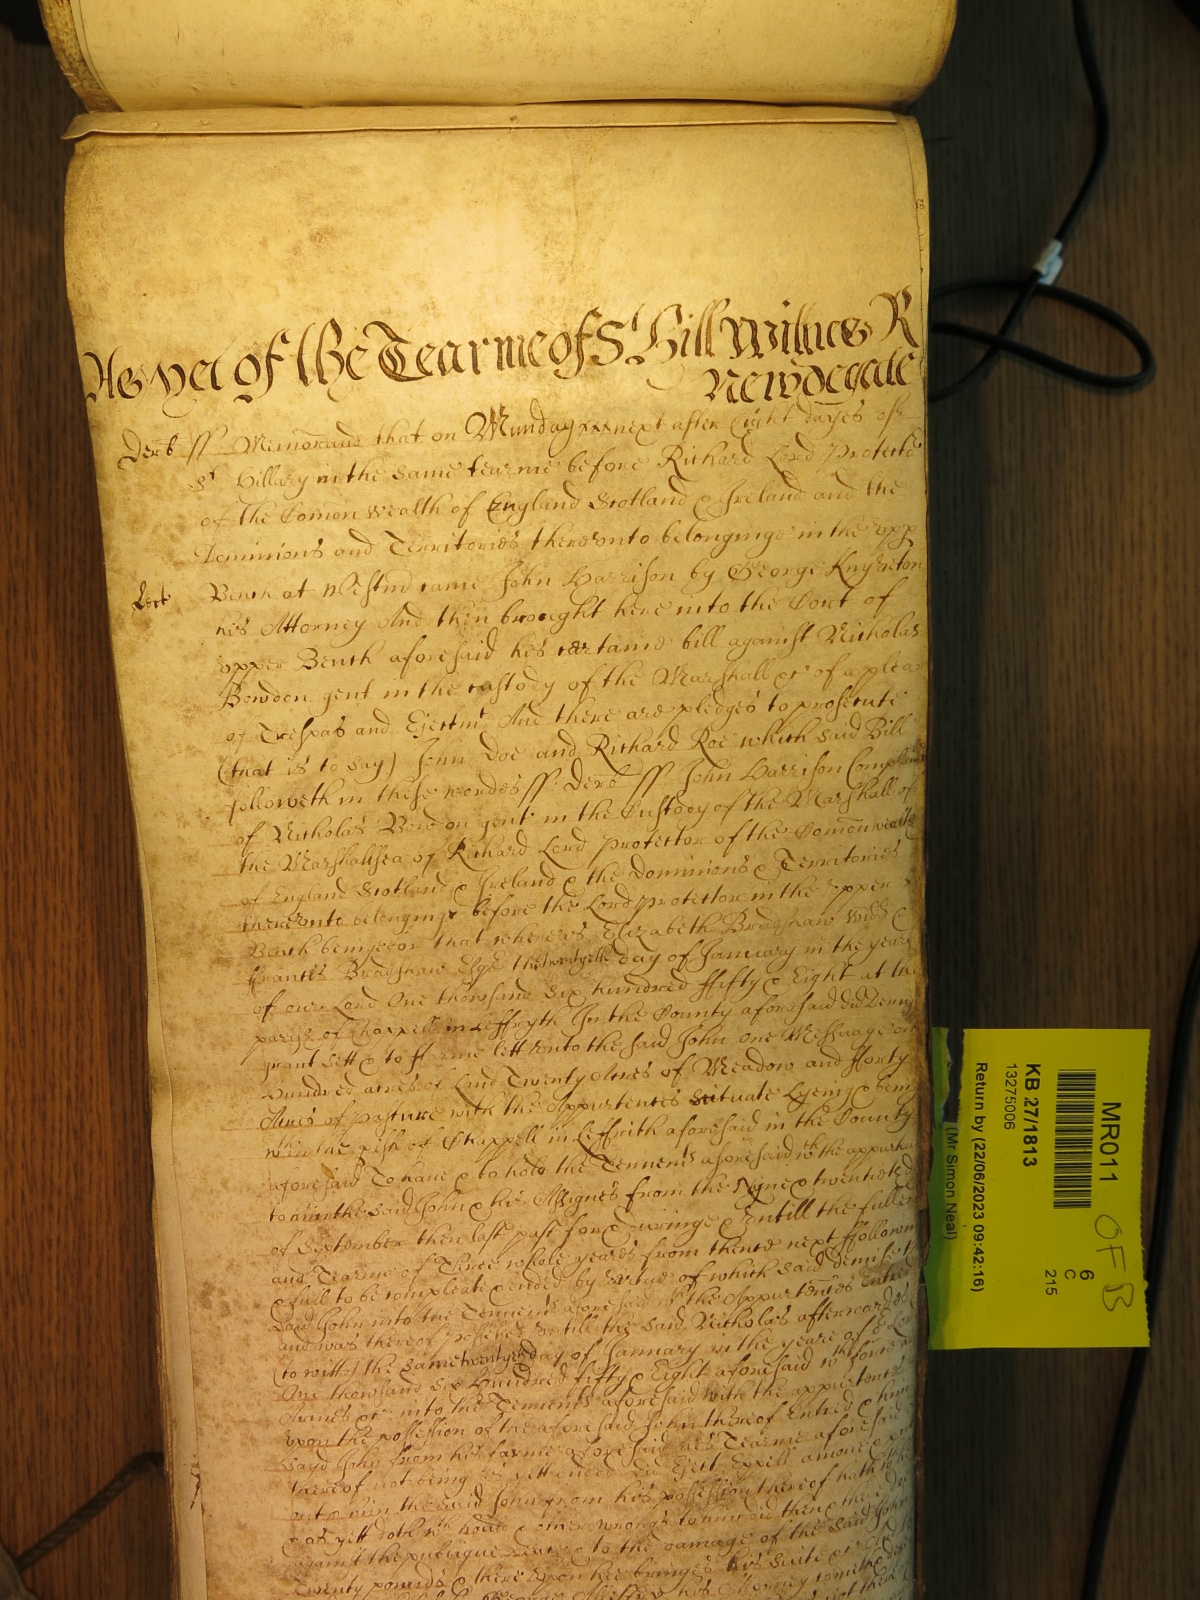 As yet of the Tearme of St Hill Wittnes R
Newdegate
Derb ss Memorand that on Munday next after Eight dayes of
St Hillary in the same tearme before Richard Lord Protector
of the Comon wealth of England Scotland & Ireland and the
Dominions and Territories thereunto belonginge in the upp
Bench at Westmr came John Harrison by George Knyveton
his Attorney And then brought here into the Court of
upper Bench aforesaid his certaine bill against Nicholas
Bowdon gent in the custody of the Marshall &c of a plea
of Trespas and Ejectmt And there are pledges to prosecute
(that is to say) John Doe and Richard Roe which said Bill
followeth in these wordes ss Derb ss John Harrison Complaines
of Nicholas Bowdon gent in the Custody of the Marshall of
the Marshallsea of Richard Lord Protector of the Comonwealth
of England Scotland & Ireland & the Dominions & Territories
thereunto belonginge before the Lord Protector in the upper
Bench beinge for that whereas Elizabeth Bradshaw Widd &
Francis Bradshaw Esqr the twentyeth day of January in the yeare
of our Lord One thowsand Six hundred ffifty & Eight at the
parish of Chappell in Leffryth In the County aforesaid did Demise
grant sett & to ffarme lett unto the said John one Messuage one
hundred acres of Land Twenty Acres of Meadow and fforty
Acres of pasture with the Appurtences Scituate Lyeing & being
within the pish of Chappell in Leffrith aforesaid in the County
aforesaid To have & to hold the Tennemts aforesaid wth the appurten
to him the said John & his Assignes from the Nyne & twentieth
of September then last past for & duringe & untill the full end
and Tearme of Three whole yeares from thence next ffollowinge
& full to be compleate & ended by vertue of which said demise the
said John into the Tennemts aforesaid wth the Appurtences Entred
and was thereof possessed untill the said Nicholas afterwardes
(to witt) the same twentyeth day of January in the yeare of or Lord
One thowsand six hundred fifty & Eight aforesaid wth force and
Armes &c into the Tennemts aforesaid with the appurtences
upon the possession of the aforesaid John thereof Entred & him
said John from his farme aforesaid his Tearme aforesaid
thereof not being as yett ended did Eject Expell amove &
the said John from his possession thereof hath
& as yett doth wth hould & other wrongs to him did then & there
against the publique peace & to the damage of the said John
Twenty pounds & there upon hee bringes his suite &c
MR011
OF B
6
C
215
KB 27/1813
13275006
Return by (22/06/2023 09:42:16)
(Mr Simon Neal)